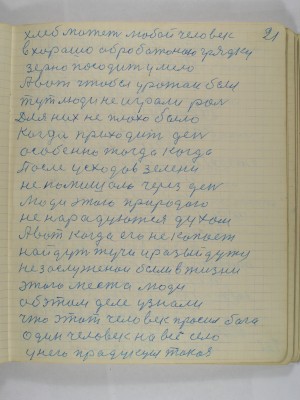 21
хлеб может любой человек
в хорашо обробатоною грядки
зерно посодит умело
А вот чтобы урожаи были
тут люди не играли рол
Для них не плохо было
когда приходит деп
особенно тогда когда
После усходов зелени
не помишало через деп
люди этого природого
не нарадуются духом
А вот когда его не капает
найдут тучи и разый дужу
не заслуженои были в жизни
этого места люди
об этом деле узнали
что этот человек просил бога
один человек на всё село
у него прадукция такова